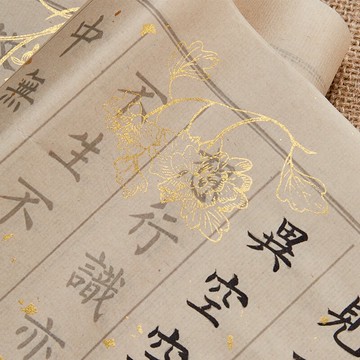 異空空
行識亦
不生不
中無